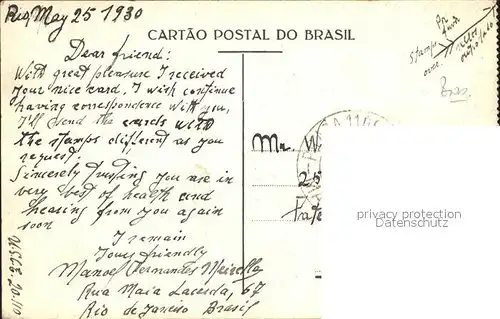 Rio, May 25 1930
CARTÃO POSTAL DO BRASIL
Dear friend:
With great pleasure I received
your nice card. I wish continue
having correspondence with you,
I'll send the cards with
the stamps different as you
request.
Sincerely trusting you are in
very best of health and
hearing from you again
soon
I remain
Yours friendly
Manoel Fernandes Meirelles
Rua Maia Lacerda, 67
Rio de Janeiro Brasil
Mr. W
25
Pate
privacy protection
Datenschutz
stamps
over.
Bras.